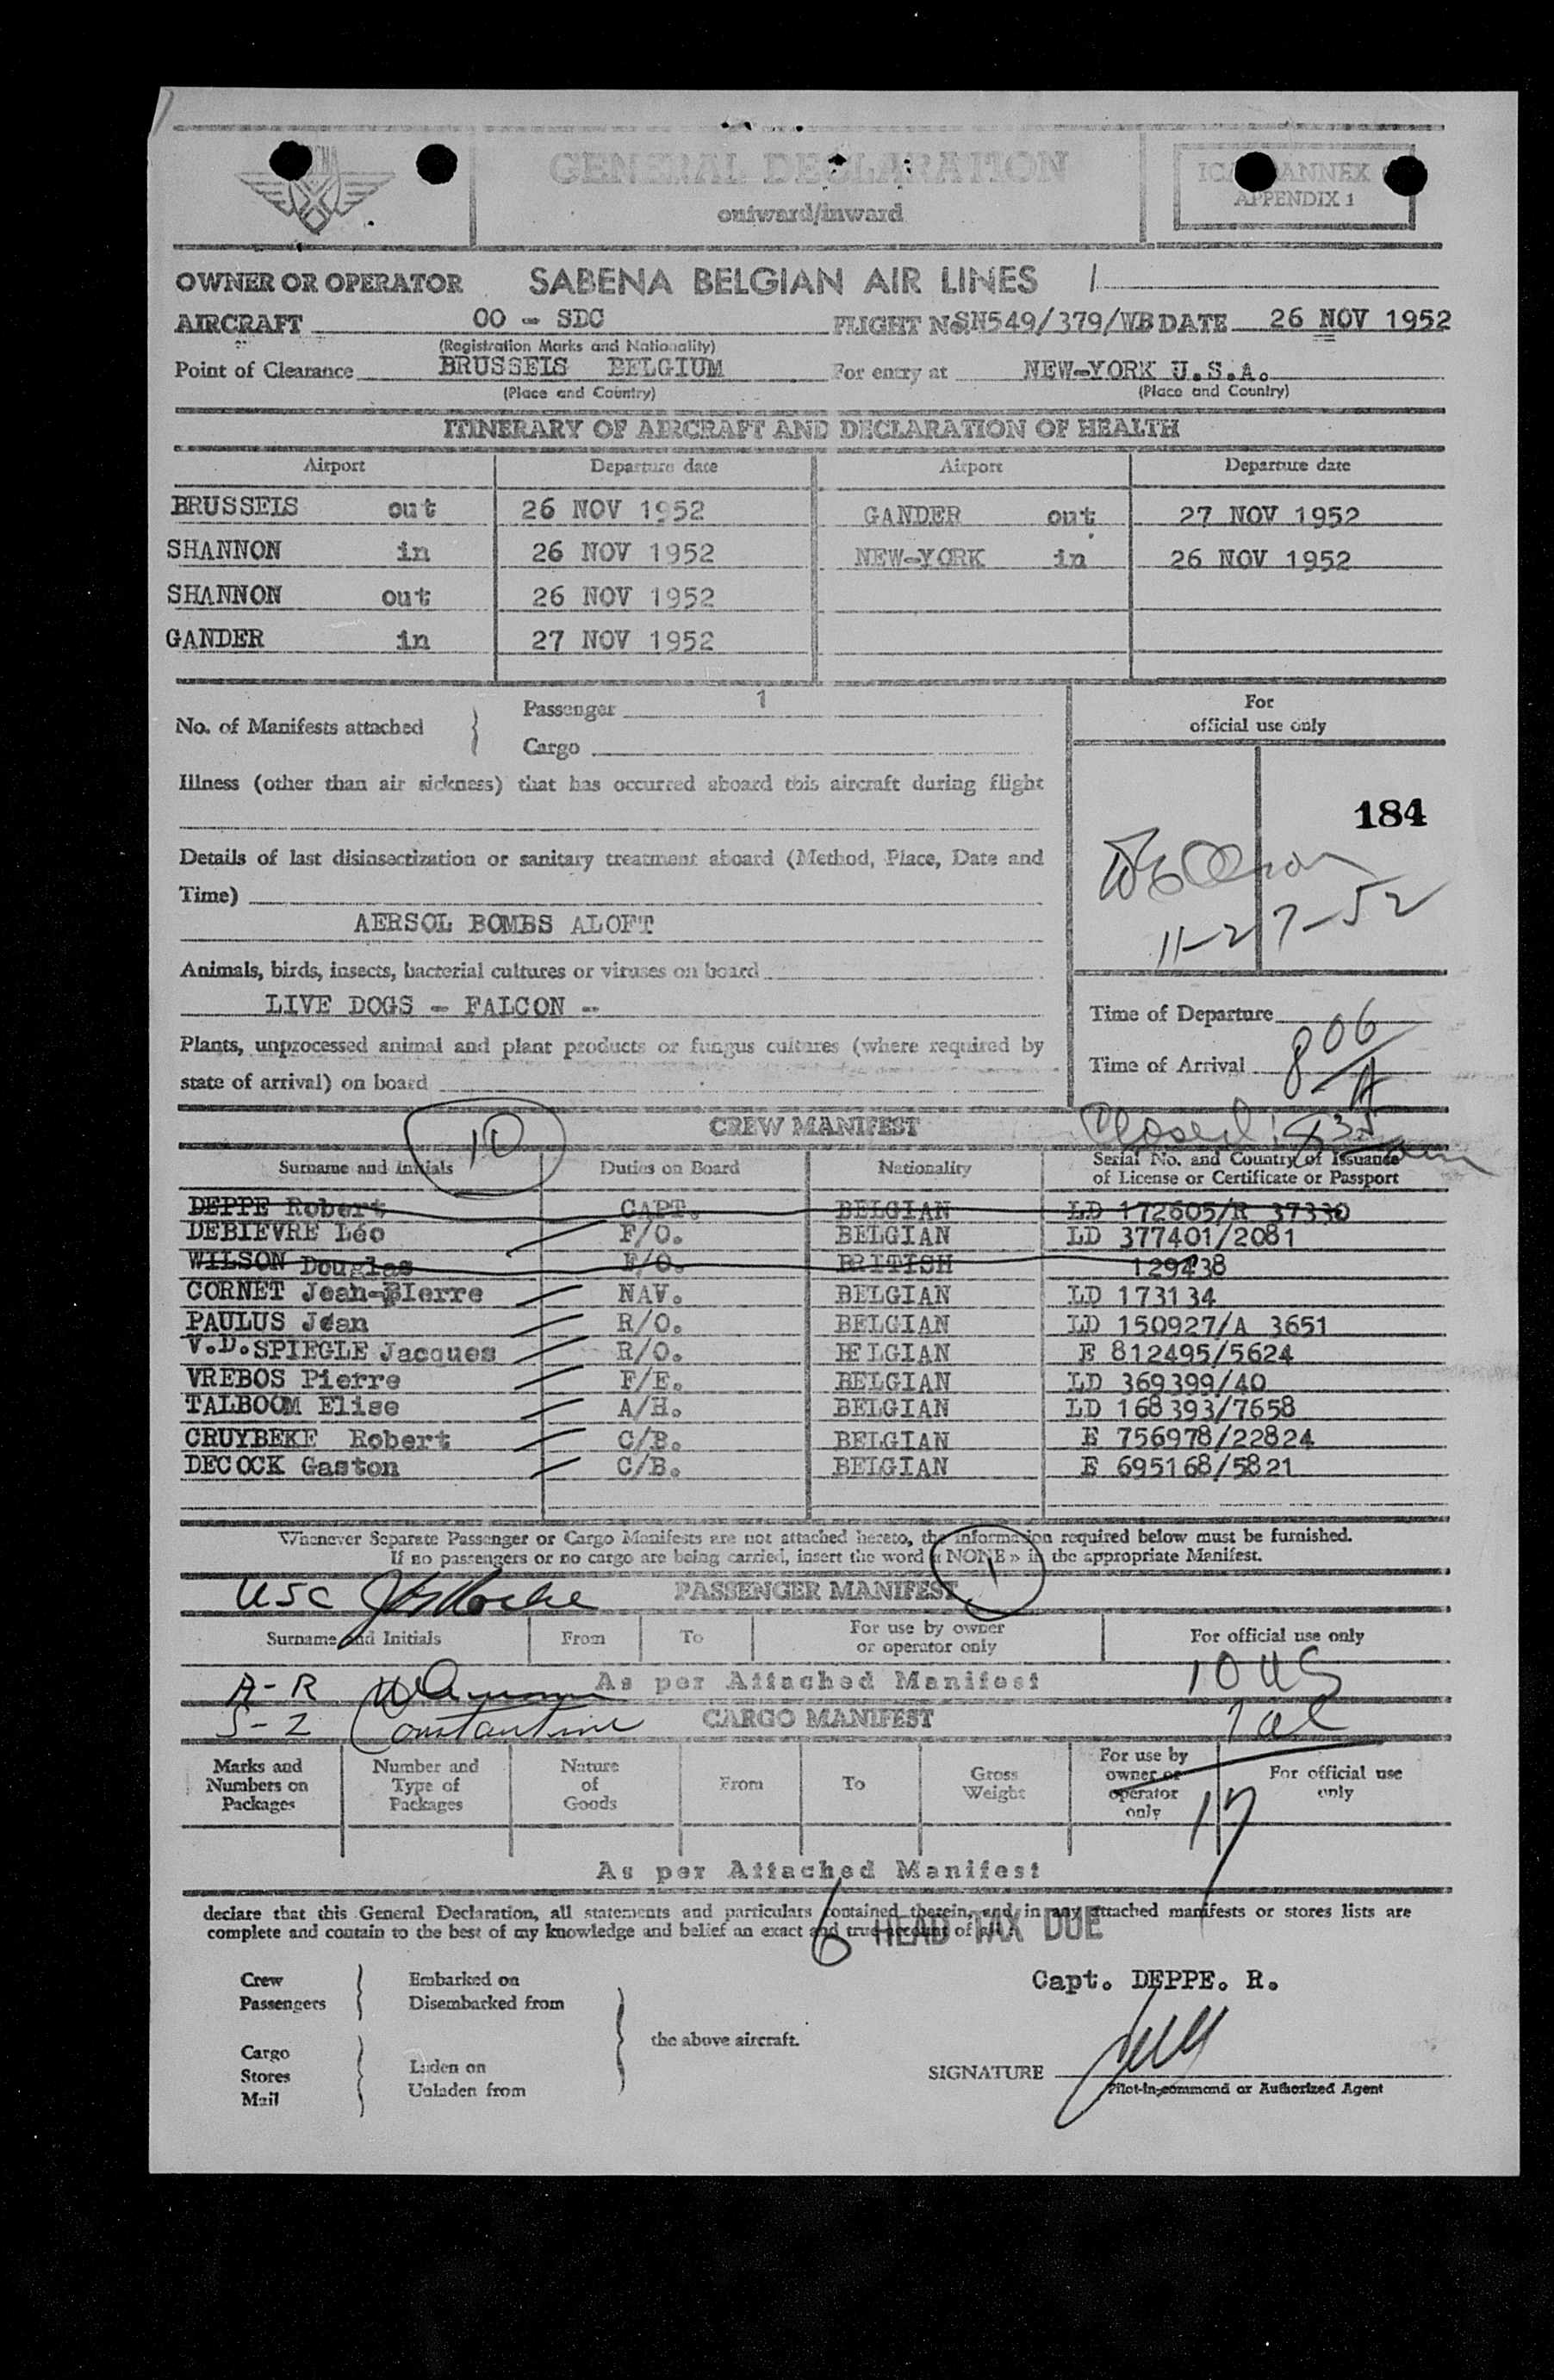 GENERAL DECLARATION
outward/inward
ANNEX
APPENDIX 1
OWNER OR OPERATOR SABENA BELGIAN AIR LINES 1
AIRCRAFT OO - SDC FLIGHT No. SN549/379/WB DATE 26 NOV 1952
(Registration Marks and Nationality)
Point of Clearance BRUSSELS BELGIUM For entry at NEW-YORK U.S.A.
(Place and Country) (Place and Country)
ITINERARY OF AIRCRAFT AND DECLARATION OF HEALTH
Airport Departure date Airport Departure date
BRUSSELS out 26 NOV 1952 GANDER out 27 NOV 1952
SHANNON in 26 NOV 1952 NEW-YORK in 26 NOV 1952
SHANNON out 26 NOV 1952
GANDER in 27 NOV 1952
No. of Manifests attached Passenger 1
Cargo
For
official use only
Illness (other than air sickness) that has occurred aboard this aircraft during flight
184
Details of last disinsectization or sanitary treatment aboard (Method, Place, Date and
Time)
AERSOL BOMBS ALOFT
11-27-52
Animals, birds, insects, bacterial cultures or viruses on board
LIVE DOGS - FALCON --
Time of Departure
Plants, unprocessed animal and plant products or fungus cultures (where required by
state of arrival) on board
Time of Arrival 806
A
CREW MANIFEST
10
Closed
Surname and initials Duties on Board Nationality Serial No. and Country of Issuance
of License or Certificate or Passport
DEPPE Robert CAPT. BELGIAN LD 172605/R 37330
DEBIEVRE Léo F/O. BELGIAN LD 377401/2081
WILSON Douglas F/O. BRITISH 129438
CORNET Jean-PIerre NAV. BELGIAN LD 173134
PAULUS Jean R/O. BELGIAN LD 150927/A 3651
V.D.SPIEGLE Jacques R/O. BELGIAN E 812495/5624
VREBOS Pierre F/E. BELGIAN LD 369399/40
TALBOOM Elise A/H. BELGIAN LD 168393/7658
CRUYBEKE Robert C/B. BELGIAN E 756978/22824
DECOCK Gaston C/B. BELGIAN E 695168/5821
Whenever Separate Passenger or Cargo Manifests are not attached hereto, the information required below must be furnished.
If no passengers or no cargo are being carried, insert the word « NONE » in the appropriate Manifest.
1
USC
PASSENGER MANIFEST
Surname and Initials From To For use by owner
or operator only For official use only
A-R As per Attached Manifest 10 US
S-2 Constantine CARGO MANIFEST
Marks and
Numbers on
Packages
Number and
Type of
Packages
Nature
of
Goods
From
To
Gross
Weight
For use by
owner or
operator
only
For official use
only
17
As per Attached Manifest
declare that this General Declaration, all statements and particulars contained therein, and in any attached manifests or stores lists are
complete and contain to the best of my knowledge and belief an exact and true account of all
6 HEAD TAX DUE
Crew
Passengers
Embarked on
Disembarked from
Cargo
Stores
Mail
Laden on
Unladen from
the above aircraft.
Capt. DEPPE. R.
SIGNATURE
Pilot-in-command or Authorized Agent